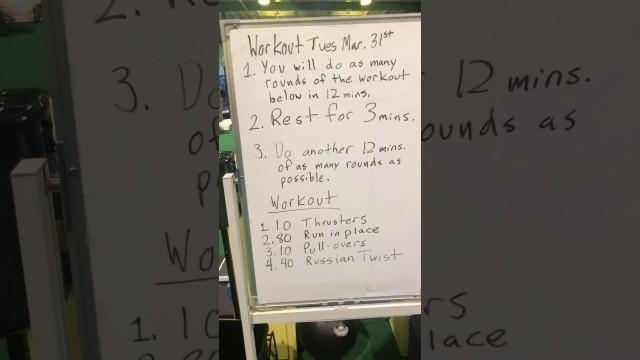 Workout Tues Mar. 31st
1. You will do as many
rounds of the workout
below in 12 mins.
2. Rest for 3 mins.
3. Do another 12 mins.
of as many rounds as
possible.
Workout
1. 10 Thrusters
2. 80 Run in place
3. 10 Pull-overs
4. 40 Russian Twist